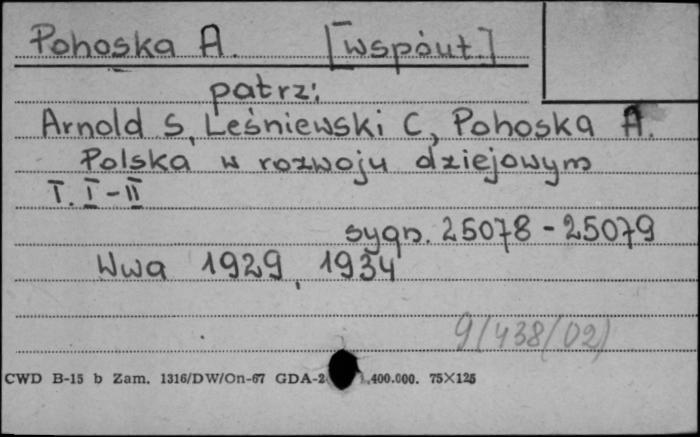 Pohoska A. [współut.]
patrz:
Arnold S, Leśniewski C, Pohoska A.
Polska w rozwoju dziejowym
T. I-II
sygn. 25078-25079
Wwa 1929, 1934
9/438/02)
CWD B-15 b Zam. 1316/DW/On-67 GDA-2 .400.000. 75X125